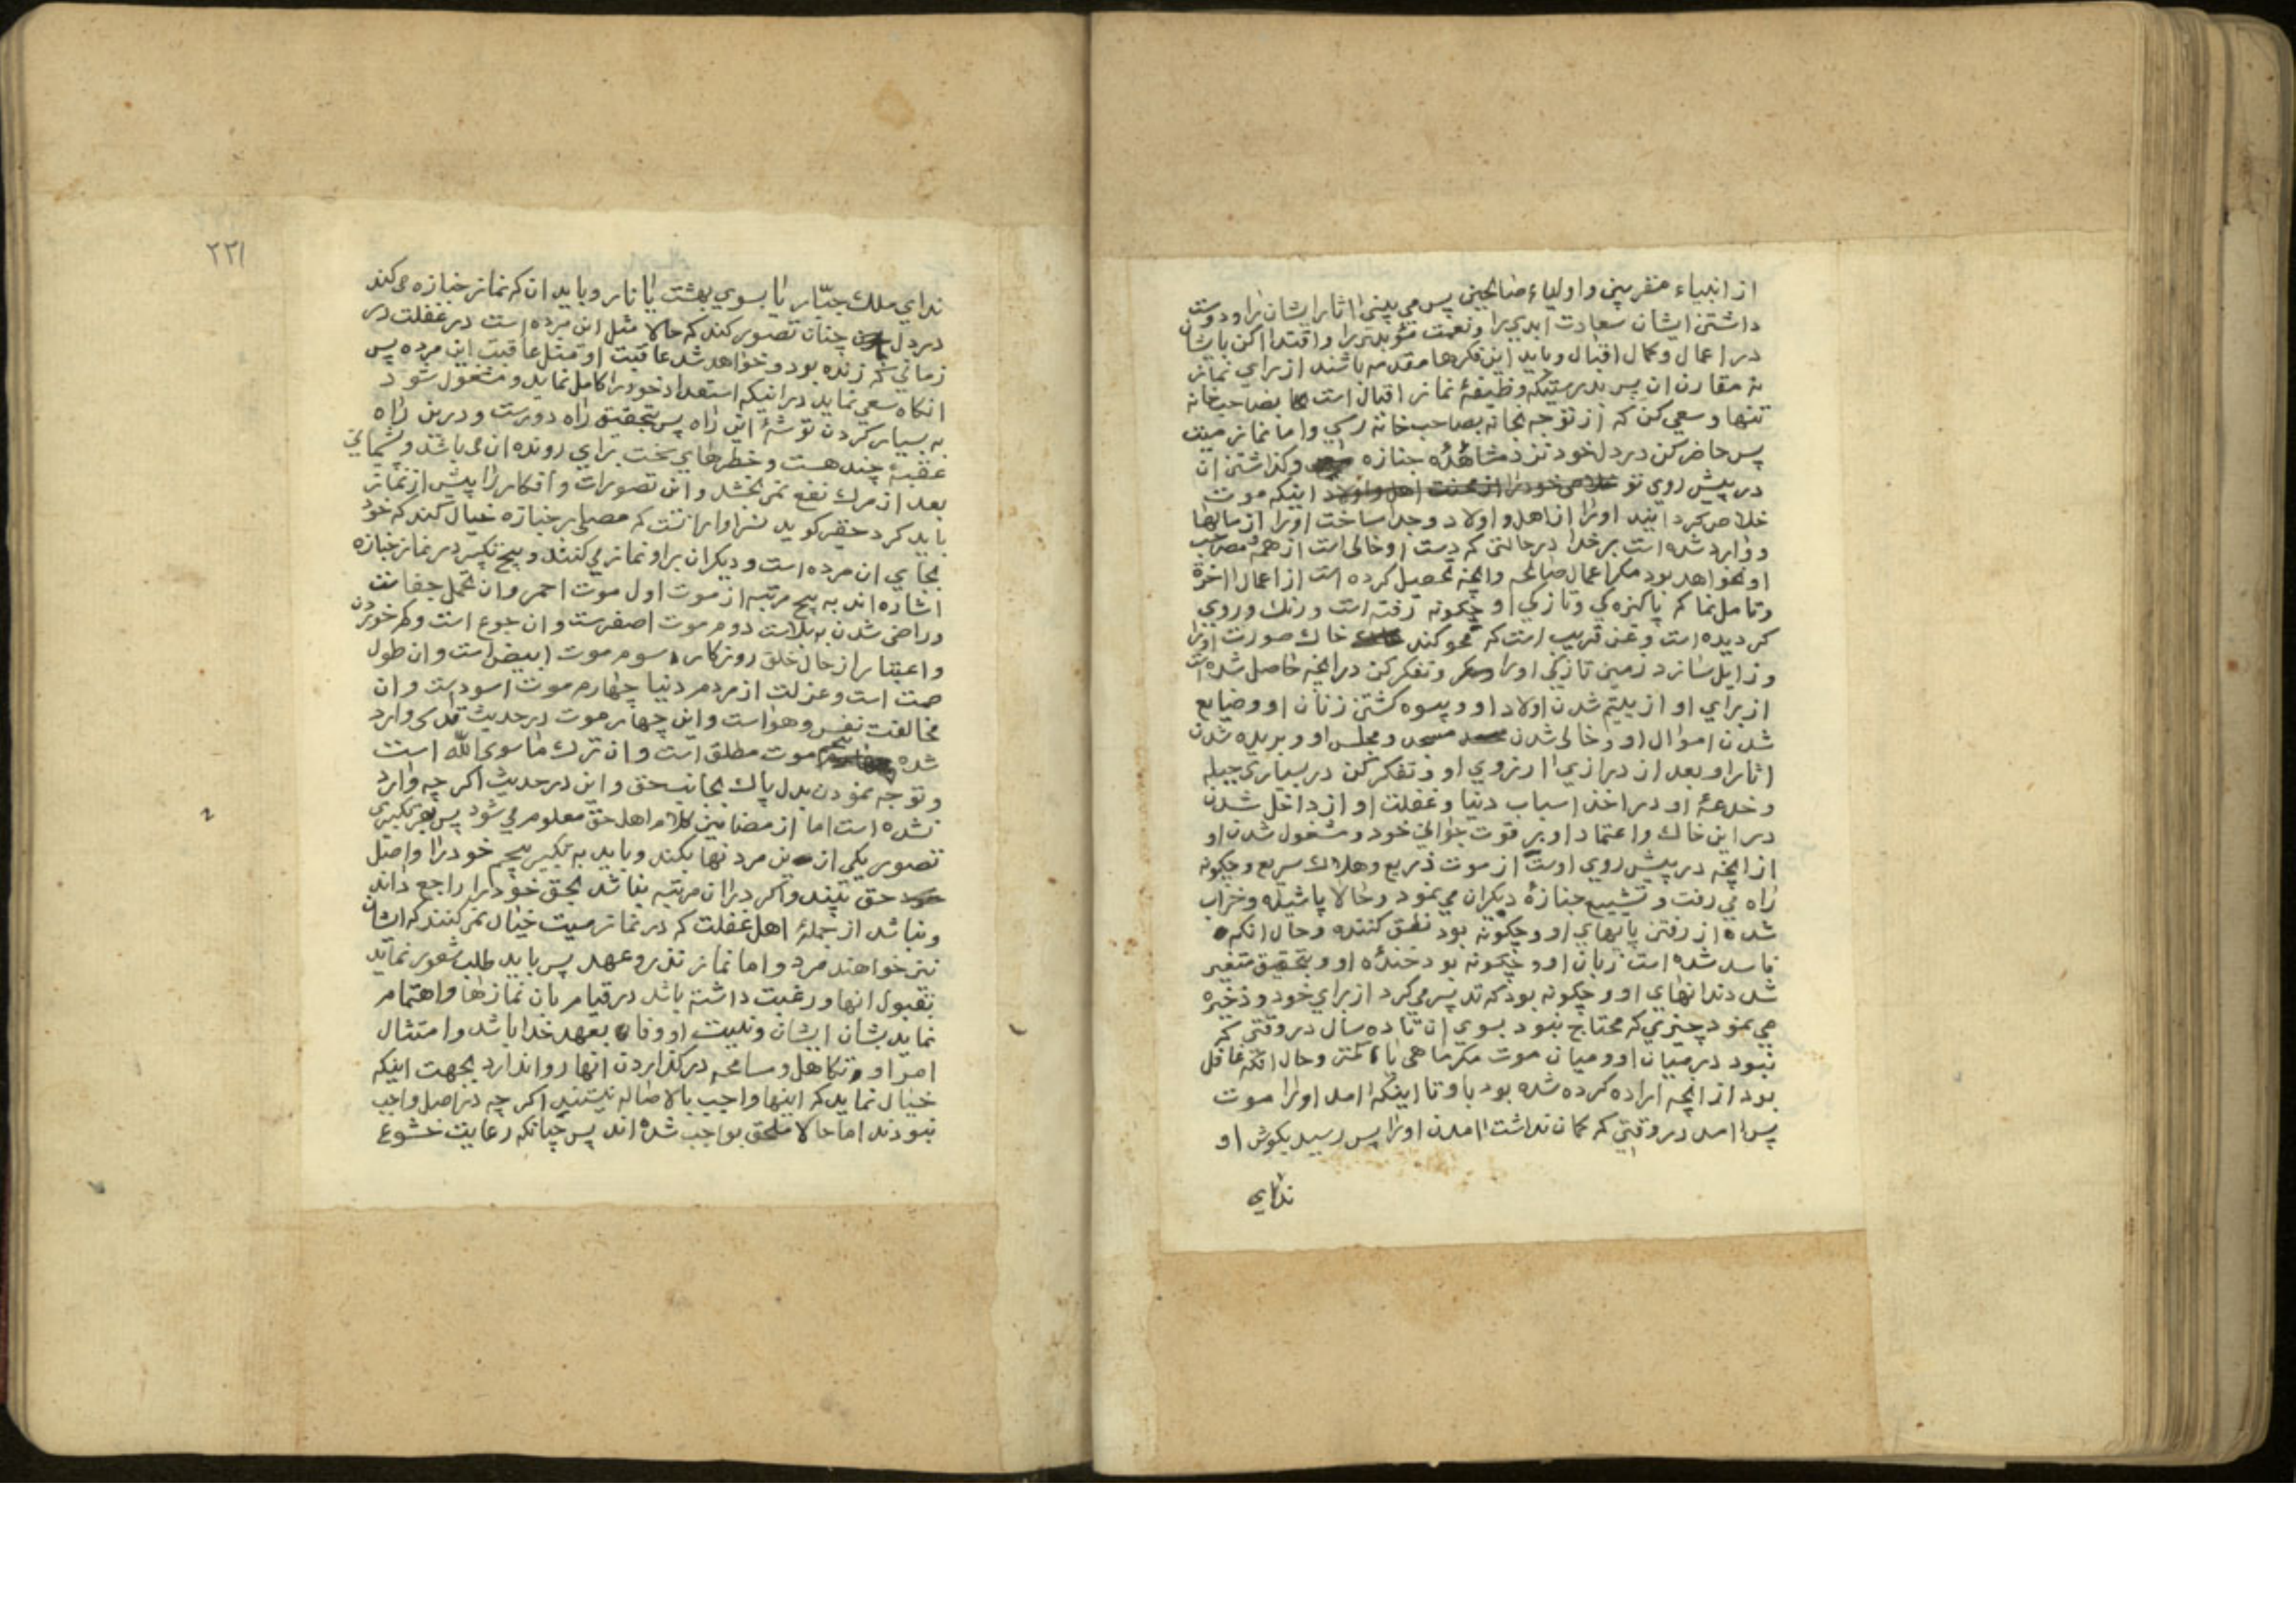 از انبیاء مقربین و اولیاء صالحین پس می بینی اثار ایشان را و دوست
داشتن ایشان سعادت ابدی را و نعمت مؤبدتر را و اقتدا کن بایشان
در اعمال و کمال اقبال و باید این فکرها مقدمه باشند از برای نماز
نه مقارن ان پس بدرستیکه وظیفهٔ نماز اقبال است بصاحب خانه
تنها و سعی کن که از توجه بخانه بصاحب خانه رسی و اما نماز میت
پس حاضر کن در دل خود نزد مشاهدهٔ جنازه و کذاشتن ان
در پیش روی تو اینکه موت
خلاص کردانید او را از اهل و اولاد و جدا ساخت او را از مالها
و وارد شده است بر خدا در حالتی که دست او خالی است از همه مصاحب
او نخواهد بود مکر اعمال صالحه و انچه تحصیل کرده است از اعمال اخرة
و تامل نما که پاکیزه کی و تازکی او چکونه رفته است و رنک و روی
کردیده است و عن قریب است که محو کند خاک صورت او را
و زایل سازد زمین تازکی او را و تفکر کن در انچه حاصل شده است
از برای او از یتیم شدن اولاد او و بیوه کشتن زنان او و ضایع
شدن اموال او و خالی شدن مسجد و مجلس او و بریده شدن
اثار او بعد از درازی ارزوی او و تفکر کن در بسیاری حیله
و خدعهٔ او در اخذ اسباب دنیا و غفلت او از داخل شدن
در این خاک و اعتماد او بر قوت جوانی خود و مشغول شدن او
از انچه در پیش روی اوست از موت ذریع و هلاک سریع و چکونه
راه می رفت و تشییع جنازهٔ دیکران می نمود و حالا پاشیده و خراب
شده از رفتن پایهای او و چکونه بود نطق کننده و حال انکه
فاسد شده است زبان او و چکونه بود خندهٔ او و بتحقیق متغیر
شد دندانهای او و چکونه بود که تدبیر می کرد از برای خود و ذخیره
می نمود چیزی که محتاج نبود بسوی ان تا ده سال در وقتی که
نبود در میان او و میان موت مکر ماهی یا کمتر و حال انکه غافل
بود از انچه اراده کرده شده بود باو تا اینکه امد او را موت
پس امد در وقتی که کمان نداشت امدن او را پس رسید بکوش او
ندای
۲۲۱
ندای ملک جبّار یا بسوی بهشت یا نار و باید ان که نماز جنازه می کند
در دل چنان تصویر کند که حالا مثل این مرده است در غفلت در
زمانی که زنده بود و خواهد شد عاقبت او مثل عاقبت این مرده پس
انکاه سعی نماید در انیکه استعداد خود را کامل نماید و مشغول شود
به بسیار کردن توشهٔ این راه پس بتحقیق راه دورست و درین راه
عقبهٔ چند هست و خطرهای سخت برای رونده ان می باشد و پشیمانی
بعد از مرک نفع نمی بخشد و این تصورات و افکار را پیش از نماز
باید کرد حقیر کوید سزاوار انست که مصلی بر جنازه خیال کند که خود
بجای ان مرده است و دیکران بر او نماز می کنند و پنج تکبیر در نماز جنازه
اشاره اند به پنج مرتبه از موت اول موت احمر و ان تحمل جفاست
و راضی شدن به بلاست دوم موت اصفرست و ان جوع است و کم خوردن
و اعتبار از حال خلق روزکار سوم موت ابیض است و ان طول
صمت است و عزلت از مردم دنیا چهارم موت اسودست و ان
مخالفت نفس و هواست و این چهار موت در حدیث قدسی وارد
شده پنجم موت مطلق است و ان ترک ما سوی اللّٰه است
و توجه نمودن بدل پاک بجانب حق و این در حدیث اکر چه وارد
نشده است اما از مضامین کلام اهل حق معلوم می شود پس بهر تکبیری
تصویر یکی از این مردنها بکند و باید به تکبیر پنجم خود را واصل
حق بیند و اکر در ان مرتبه نباشد بحق خود را راجع داند
و نباشد از جملهٔ اهل غفلت که در نماز میت خیال نمی کنند که ایشان
نیز خواهند مرد و اما نماز نذر و عهد پس باید طلب شعور نماید
بقبول انها و رغبت داشته باشد در قیام بان نمازها و اهتمام
نماید بشان ایشان و نیت او وفاء بعهد خدا باشد و امتثال
امر او و تکاهل و مسامحه در کذاردن انها روا ندارد بجهت اینکه
خیال نماید که اینها واجب بالاصاله نیستند اکر چه در اصل واجب
نبودند اما حالا ملحق بواجب شده اند پس چنانکه رعایت خشوع